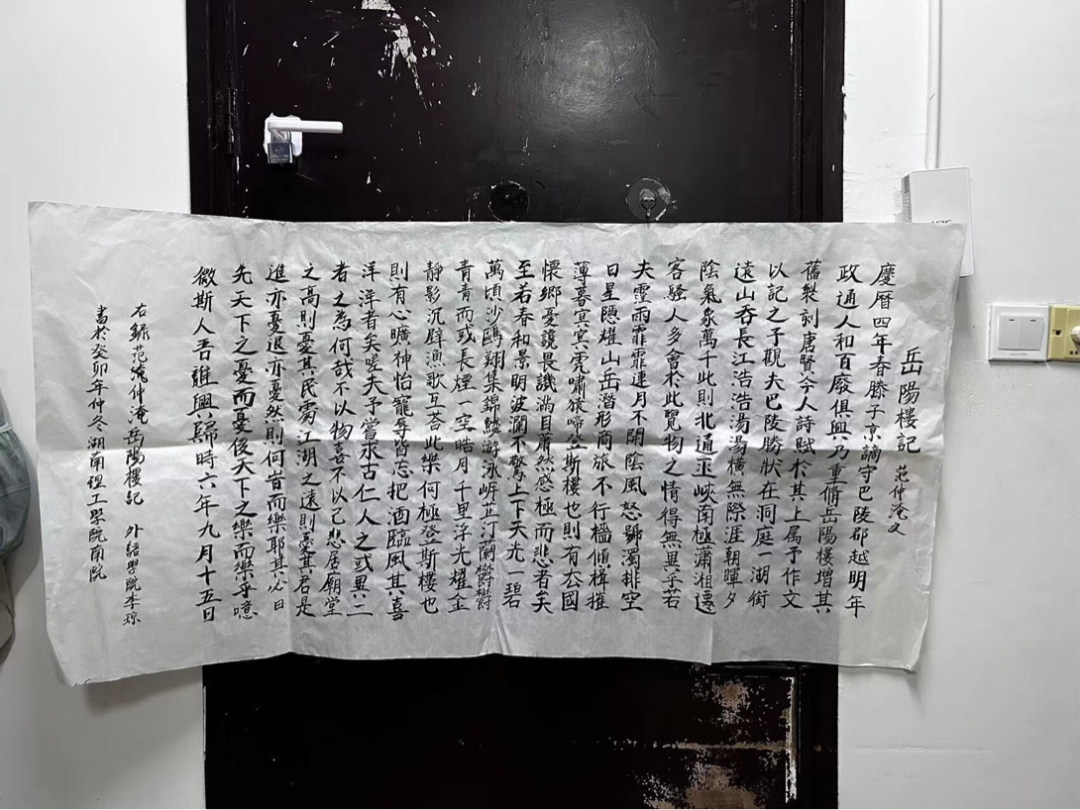 岳陽樓記 范仲淹文
慶曆四年春滕子京謫守巴陵郡越明年
政通人和百廢俱興乃重脩岳陽樓增其
舊製刻唐賢今人詩賦於其上属予作文
以記之予觀夫巴陵勝狀在洞庭一湖銜
遠山吞長江浩浩湯湯橫無際涯朝暉夕
陰氣象萬千此則北通巫峽南極瀟湘遷
客騷人多會於此覽物之情得無異乎若
夫霪雨霏霏連月不開陰風怒號濁浪排空
日星隱耀山岳潛形商旅不行檣傾楫摧
薄暮冥冥虎嘯猿啼登斯樓也則有去國
懷鄉憂讒畏譏滿目蕭然感極而悲者矣
至若春和景明波瀾不驚上下天光一碧
萬頃沙鷗翔集錦鱗游泳岸芷汀蘭鬱鬱
青青而或長煙一空皓月千里浮光耀金
靜影沉璧漁歌互荅此樂何極登斯樓也
則有心曠神怡寵辱皆忘把酒臨風其喜
洋洋者矣嗟夫予嘗求古仁人之或異二
者之為何哉不以物喜不以己悲居廟堂
之高則憂其民處江湖之遠則憂其君是
進亦憂退亦憂然則何時而樂耶其必曰
先天下之憂而憂後天下之樂而樂乎噫
微斯人吾誰與歸時六年九月十五日
右錄范仲淹岳陽樓記 外語學院李琼
書於癸卯年仲冬湖南理工學院南院